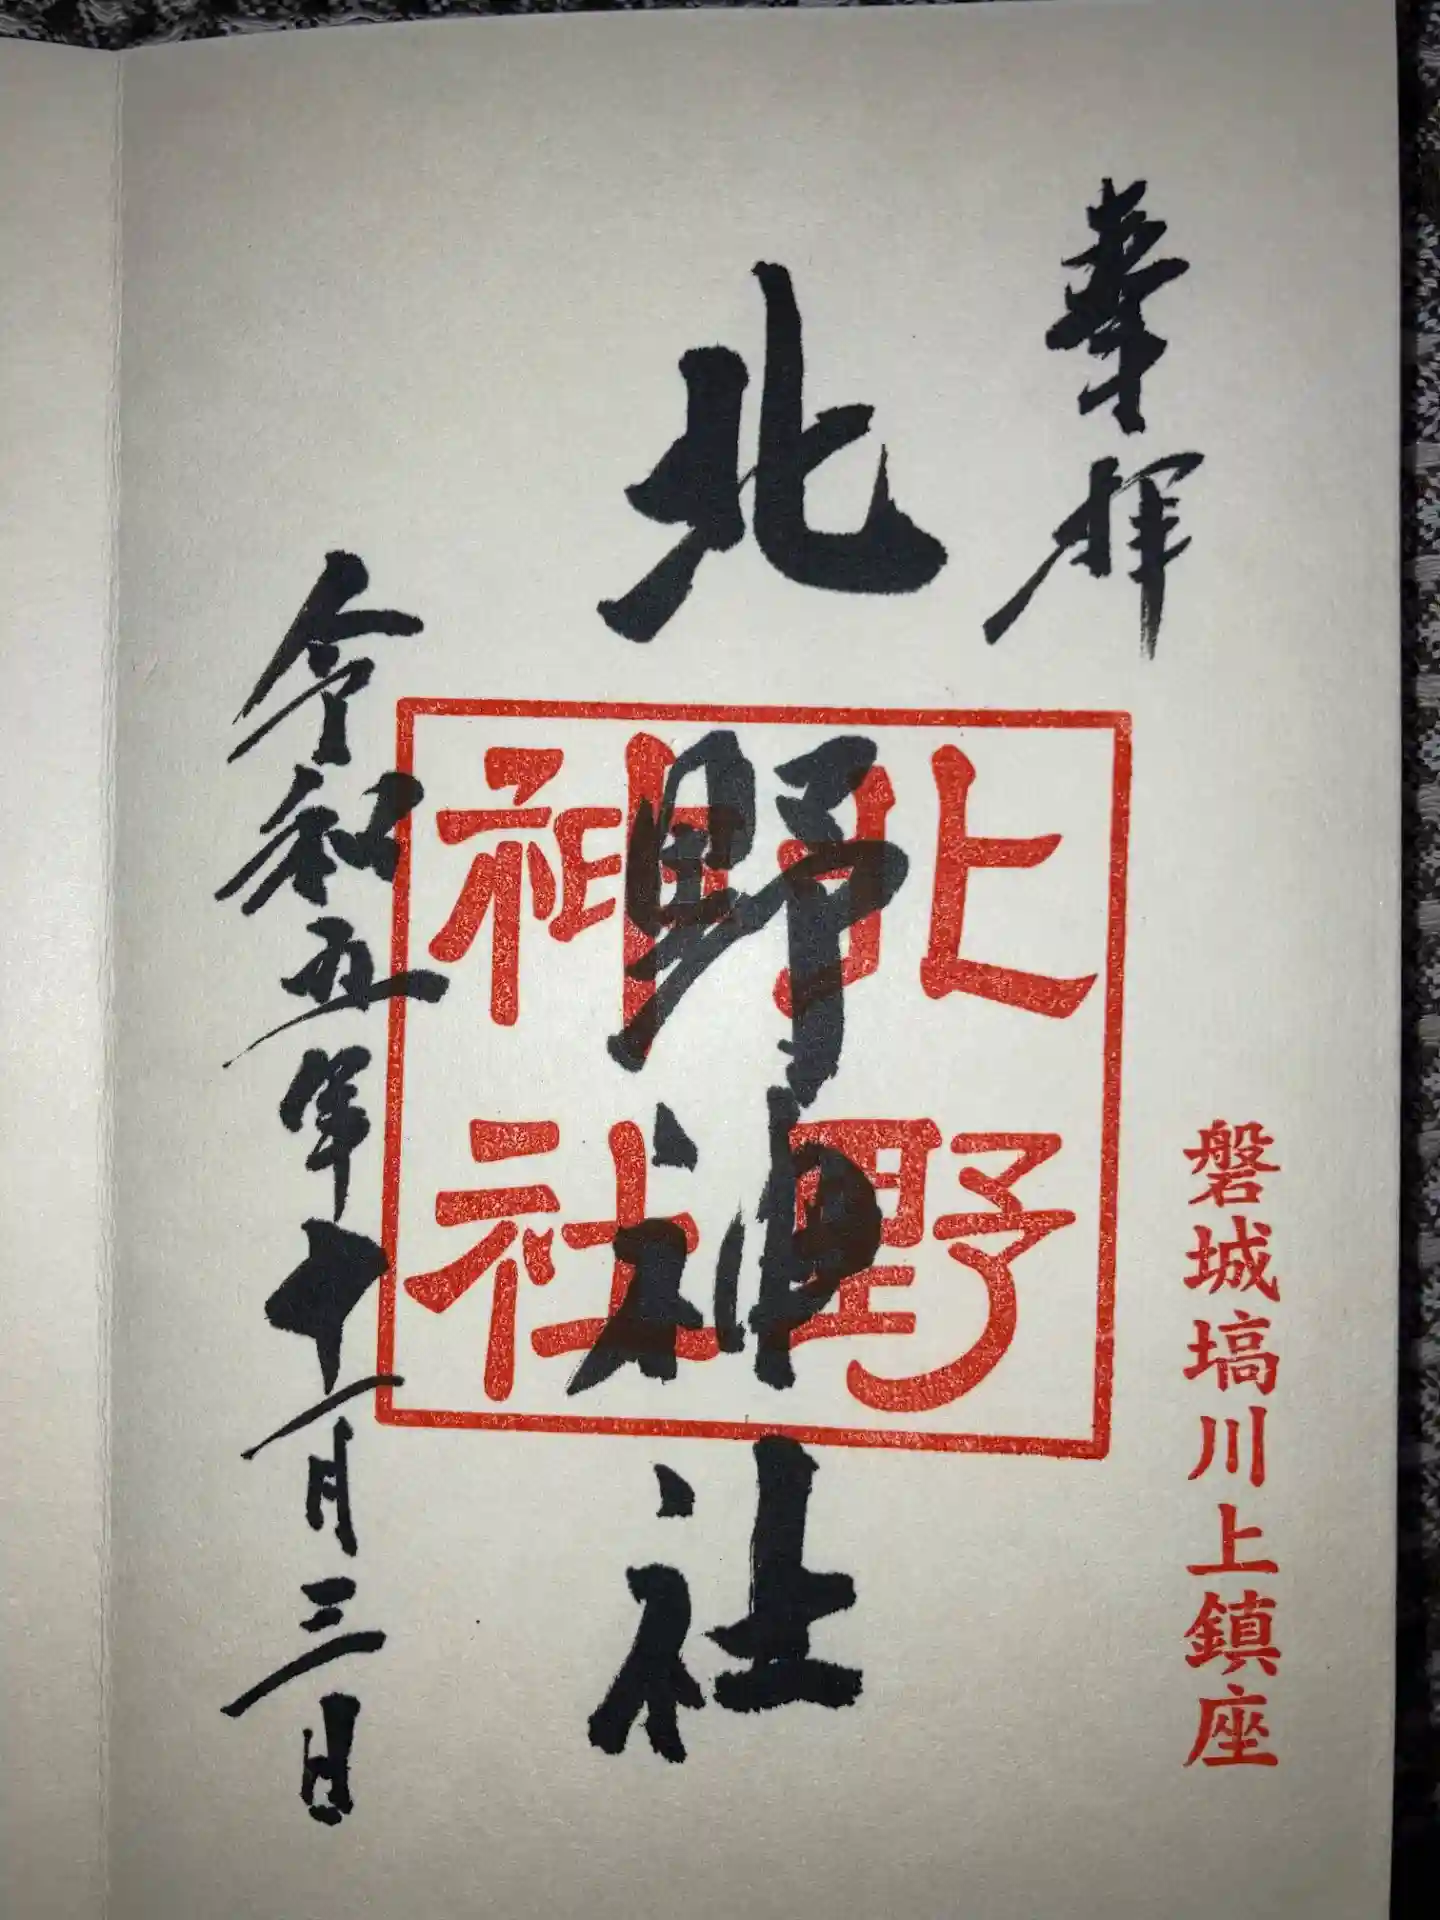 奉拝
磐城塙川上鎮座
北野神社
北野神社
令和五年十一月三日